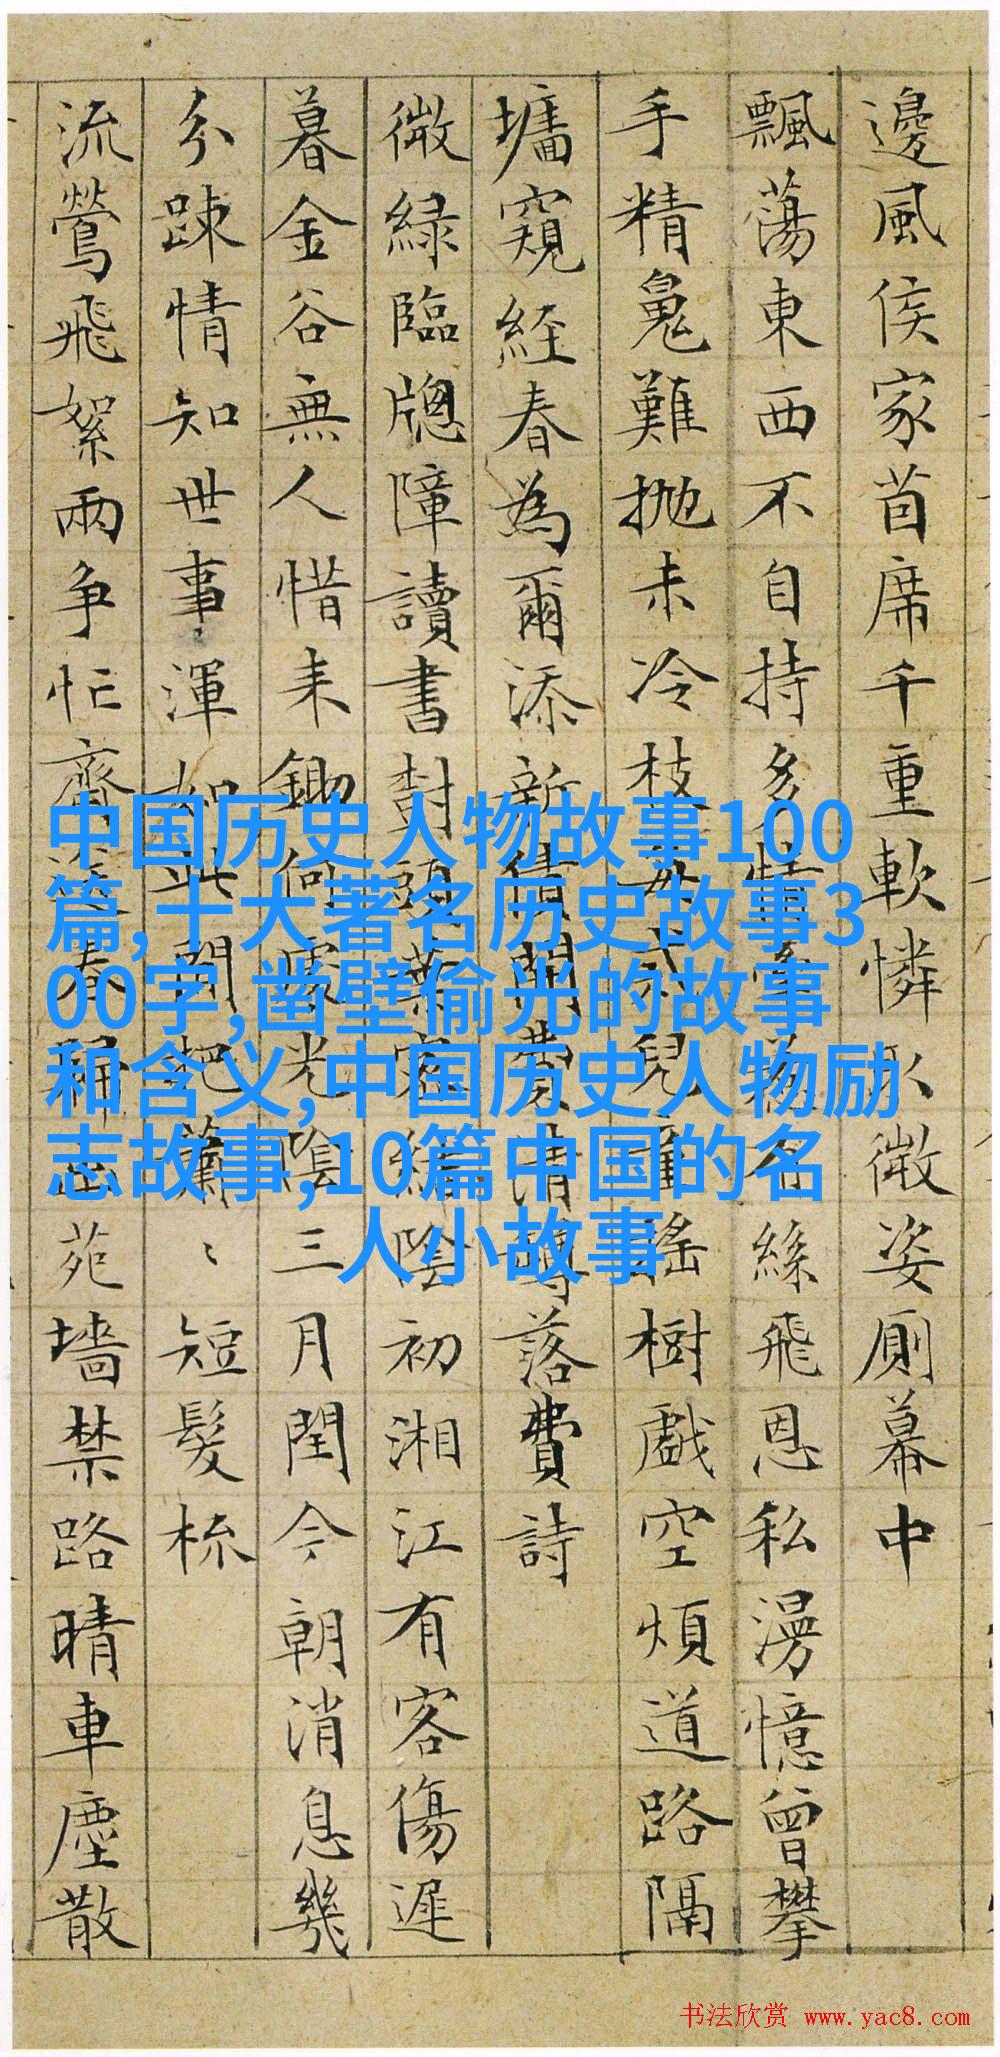 邊風侯家茵席千重軟憐以微姿厠幕中
飄蕩東西不自持多情物絲飛恩私漫憶曾攀
手精魂難抛未冷枝兒童謠樹戲空煩道路隔
墉窺經春為爾添新債開費清尊落費詩
微緑臨牕障讀書封頭葉密結陰初湘江有客傷遲
暮金谷無人惜耒鋤何處光陰三月閏今朝消息幾
分踈情知世事渾如此閒把蕭ミ短髮梳
流鶯飛絮兩爭忙齊逐春歸出苑墻禁路晴車塵散
中国历史人物故事100
篇,十大著名历史故事3
00字,凿壁偷光的故事
和含义,中国历史人物励
志故事,10篇中国的名
人小故事
书法欣赏 www.yac8.com